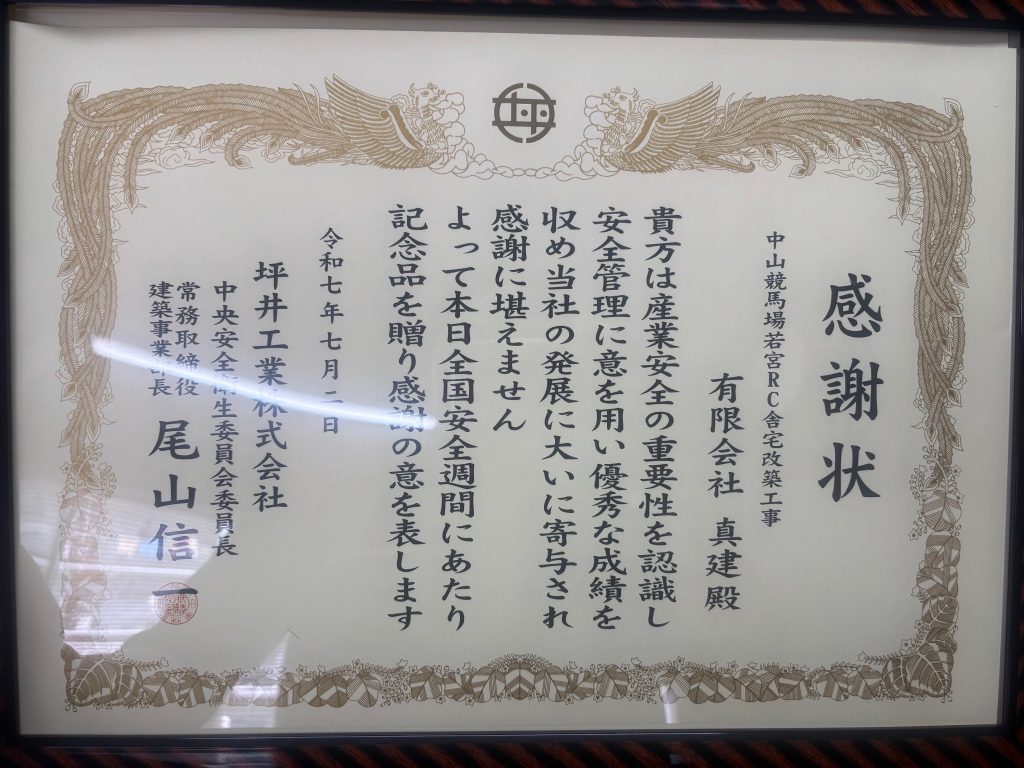 感謝状
中山競馬場若宮RC舎宅改築工事
有限会社 真建殿
貴方は産業安全の重要性を認識し
安全管理に意を用い優秀な成績を
収め当社の発展に大いに寄与され
感謝に堪えません
よって本日全国安全週間にあたり
記念品を贈り感謝の意を表します
令和七年七月二日
坪井工業株式会社
中央安全衛生委員会委員長
常務取締役
建築事業部長
尾山信一